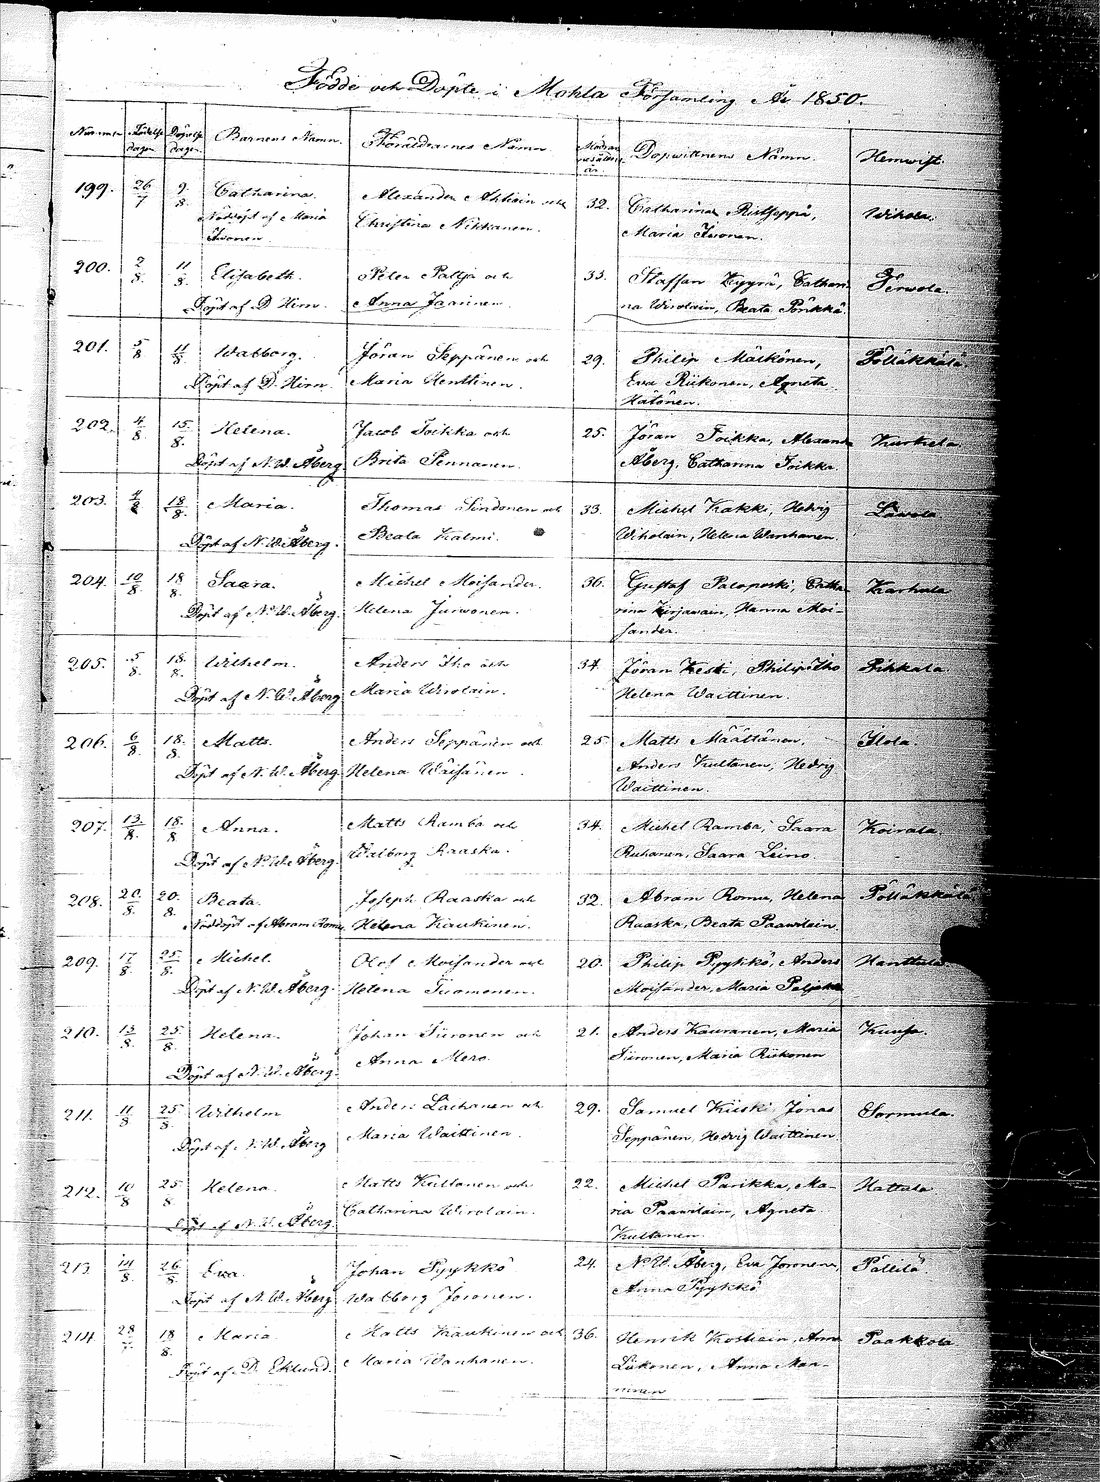 Födde och Döpte i Mohla Församling År 1850.
Födelse dagen Döpelse dagen Barnens Namn. Föräldrarnes Namn Dopwittnens Namn. Hemwist
199. 26/7 9/8. Catharina. Alexander Ahtiain och 32. Catharina Ristseppä,
Nöddöpt af Maria Christina Nikkanen. Maria Iwonen.
Iwonen.
200. 2/8. 11/8. Elisabeth. Peter Paltja och 33. Staffan Kyyrä, Cathari-
Döpt af D. Hirn. Anna Jaarinen. na Wirolain, Beata Pörkkä. Perwola.
201. 5/8 11/8. Walborg. Jöran Seppänen och 29. Philip Mäkönen, Pölläkkälä.
Döpt af D. Hirn. Maria Henttinen. Eva Riikonen, Agneta
Hätönen.
202. 4/8. 15/8. Helena. Jacob Toikka och 25. Jöran Toikka, Alexand. Kurkela
Döpt af N. W. Åberg Brita Pennanen. Åberg, Catharina Toikka
203. 18/8. Maria. Thomas Sindonen och 33. Michel Kakki, Hedvig
Döpt af N. W. Åberg. Beata Kalmi. Wiholain, Helena Wanhanen.
204. 10/8. 18/8. Saara. Michel Moisander. 36. Gustaf Paloposki, Catha- Karhula
Döpt af N. W. Åberg. Helena Juwonen. rina Kirjawain, Hanna Moi-
sander.
205. 5/8. 18/8. Wilhelm. Anders Iho och 34. Jöran Keski, Philip Iho Pihkala
Döpt af N. W. Åberg Maria Wirolain. Helena Waittinen.
206. 6/8. 18/8. Matts. Anders Seppänen och 25 Matts Määttänen, Ilola.
Döpt af N. W. Åberg Helena Wäisänen. Anders Kultanen, Hedvig
Waittinen.
207. 13/8. 18/8. Anna. Matts Ramba och 34. Michel Ramba, Saara Koirala.
Döpt af N. W. Åberg. Walborg Raaska. Ruhanen, Saara Leino
208. 20/8. 20/8. Beata. Joseph Raaska och 32. Abram Romu, Helena Pölläkkälä
Nöddöpt af Abram Romu. Helena Kaukinen. Raaska, Beata Paawilain.
209. 17/8. 25/8. Michel. Olof Moisander och 20. Philip Pyykkö, Anders Hanttula.
Döpt af N. W. Åberg. Helena Tuomonen. Moisander, Maria
210. 13/8. 25/8. Helena. Johan Siironen och 21. Anders Kauranen, Maria Kuusa.
Döpt af N. W. Åberg. Anna Mero. Siironen, Maria Riikonen
211. 11/8 25/8. Wilhelm Anders Lachanen och 29. Samuel Kiiski, Jonas Sormula.
Döpt af N. W. Åberg Maria Waittinen. Seppänen, Hedvig Waittinen.
212. 10/8 25/8 Helena. Matts Kultanen och 22. Michel Parikka, Ma- Hattula
Döpt af N. W. Åberg. Catharina Wirolain. ria Paawilain, Agneta
Kultanen.
213. 14/8. 26/8. Eva. Johan Pyykkö 24. N. W. Åberg, Eva Joronen, Pällilä
Döpt af N. W. Åberg Walborg Joronen. Anna Pyykkö
214. 18/8. Maria. Matts Kaukinen och 36. Henrik Kostiain, Anna Paakkola
Döpt af D. Eklund. Maria Wanhanen. Liikonen, Anna Man-
ninen